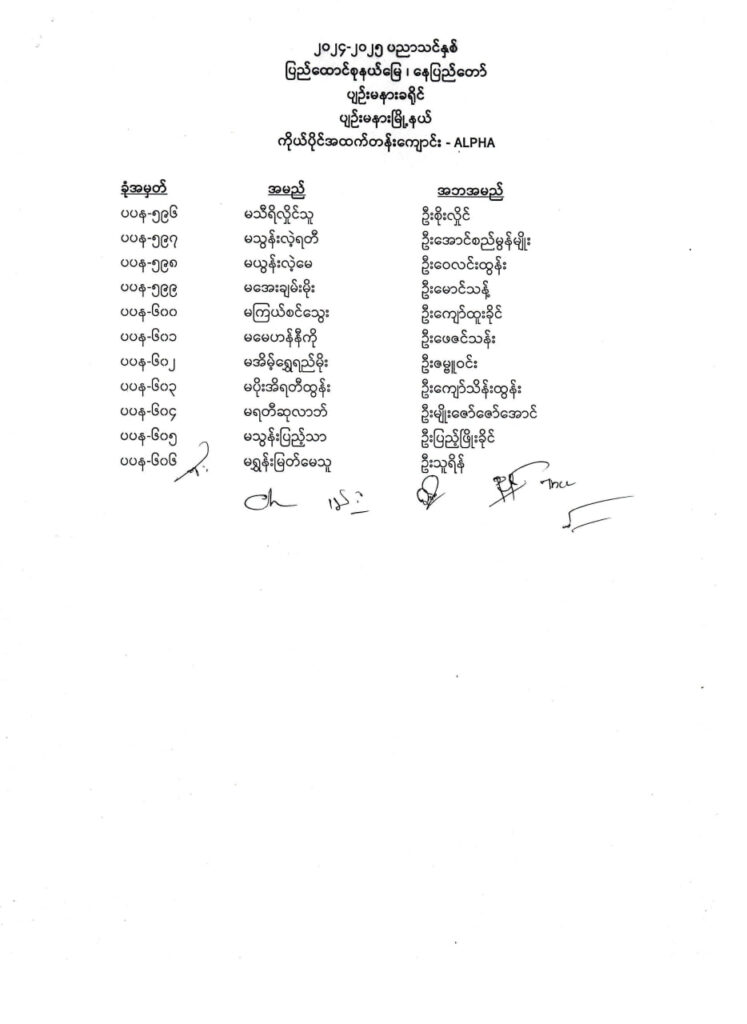 ၂၀၂၄-၂၀၂၅ ပညာသင်နှစ်
ပြည်ထောင်စုနယ်မြေ ၊ နေပြည်တော်
ပျဉ်းမနားခရိုင်
ပျဉ်းမနားမြို့နယ်
ကိုယ်ပိုင်အထက်တန်းကျောင်း - ALPHA
ခုံအမှတ် အမည် အဘအမည်
ပပန-၅၉၆ မသီရိလှိုင်သူ ဦးစိုးလှိုင်
ပပန-၅၉၇ မသွန်းလဲ့ရတီ ဦးအောင်စည်မွန်မျိုး
ပပန-၅၉၈ မယွန်းလဲ့မေ ဦးဝေလင်းထွန်း
ပပန-၅၉၉ မအေးချမ်းမိုး ဦးမောင်သန့်
ပပန-၆၀၀ မကြယ်စင်သွေး ဦးကျော်ထူးခိုင်
ပပန-၆၀၁ မမေဟန်နီကို ဦးဖေဇင်သန်း
ပပန-၆၀၂ မအိမ့်ရွှေရည်မိုး ဦးဇမ္ဗူဝင်း
ပပန-၆၀၃ မပိုးအိရတီထွန်း ဦးကျော်သိန်းထွန်း
ပပန-၆၀၄ မရတီဆုလာဘ် ဦးမျိုးဇော်ဇော်အောင်
ပပန-၆၀၅ မသွန်းပြည့်သာ ဦးပြည့်ဖြိုးခိုင်
ပပန-၆၀၆ မရွှန်းမြတ်မေသူ ဦးသူရိန်